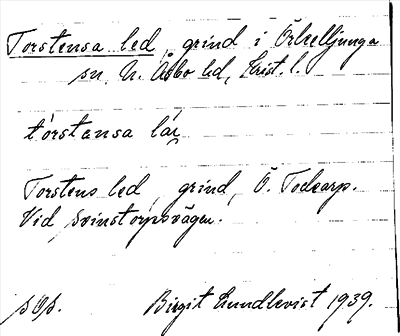 Torstensa led, grind i Örkelljunga
sn, N. Åsbo hd, Krist. l.
tórstansa lá
Torstens led, grind, Ö. Todsarp.
Vid Svinstorpsvägen.
sOs. Birgit Lundkvist 1939.